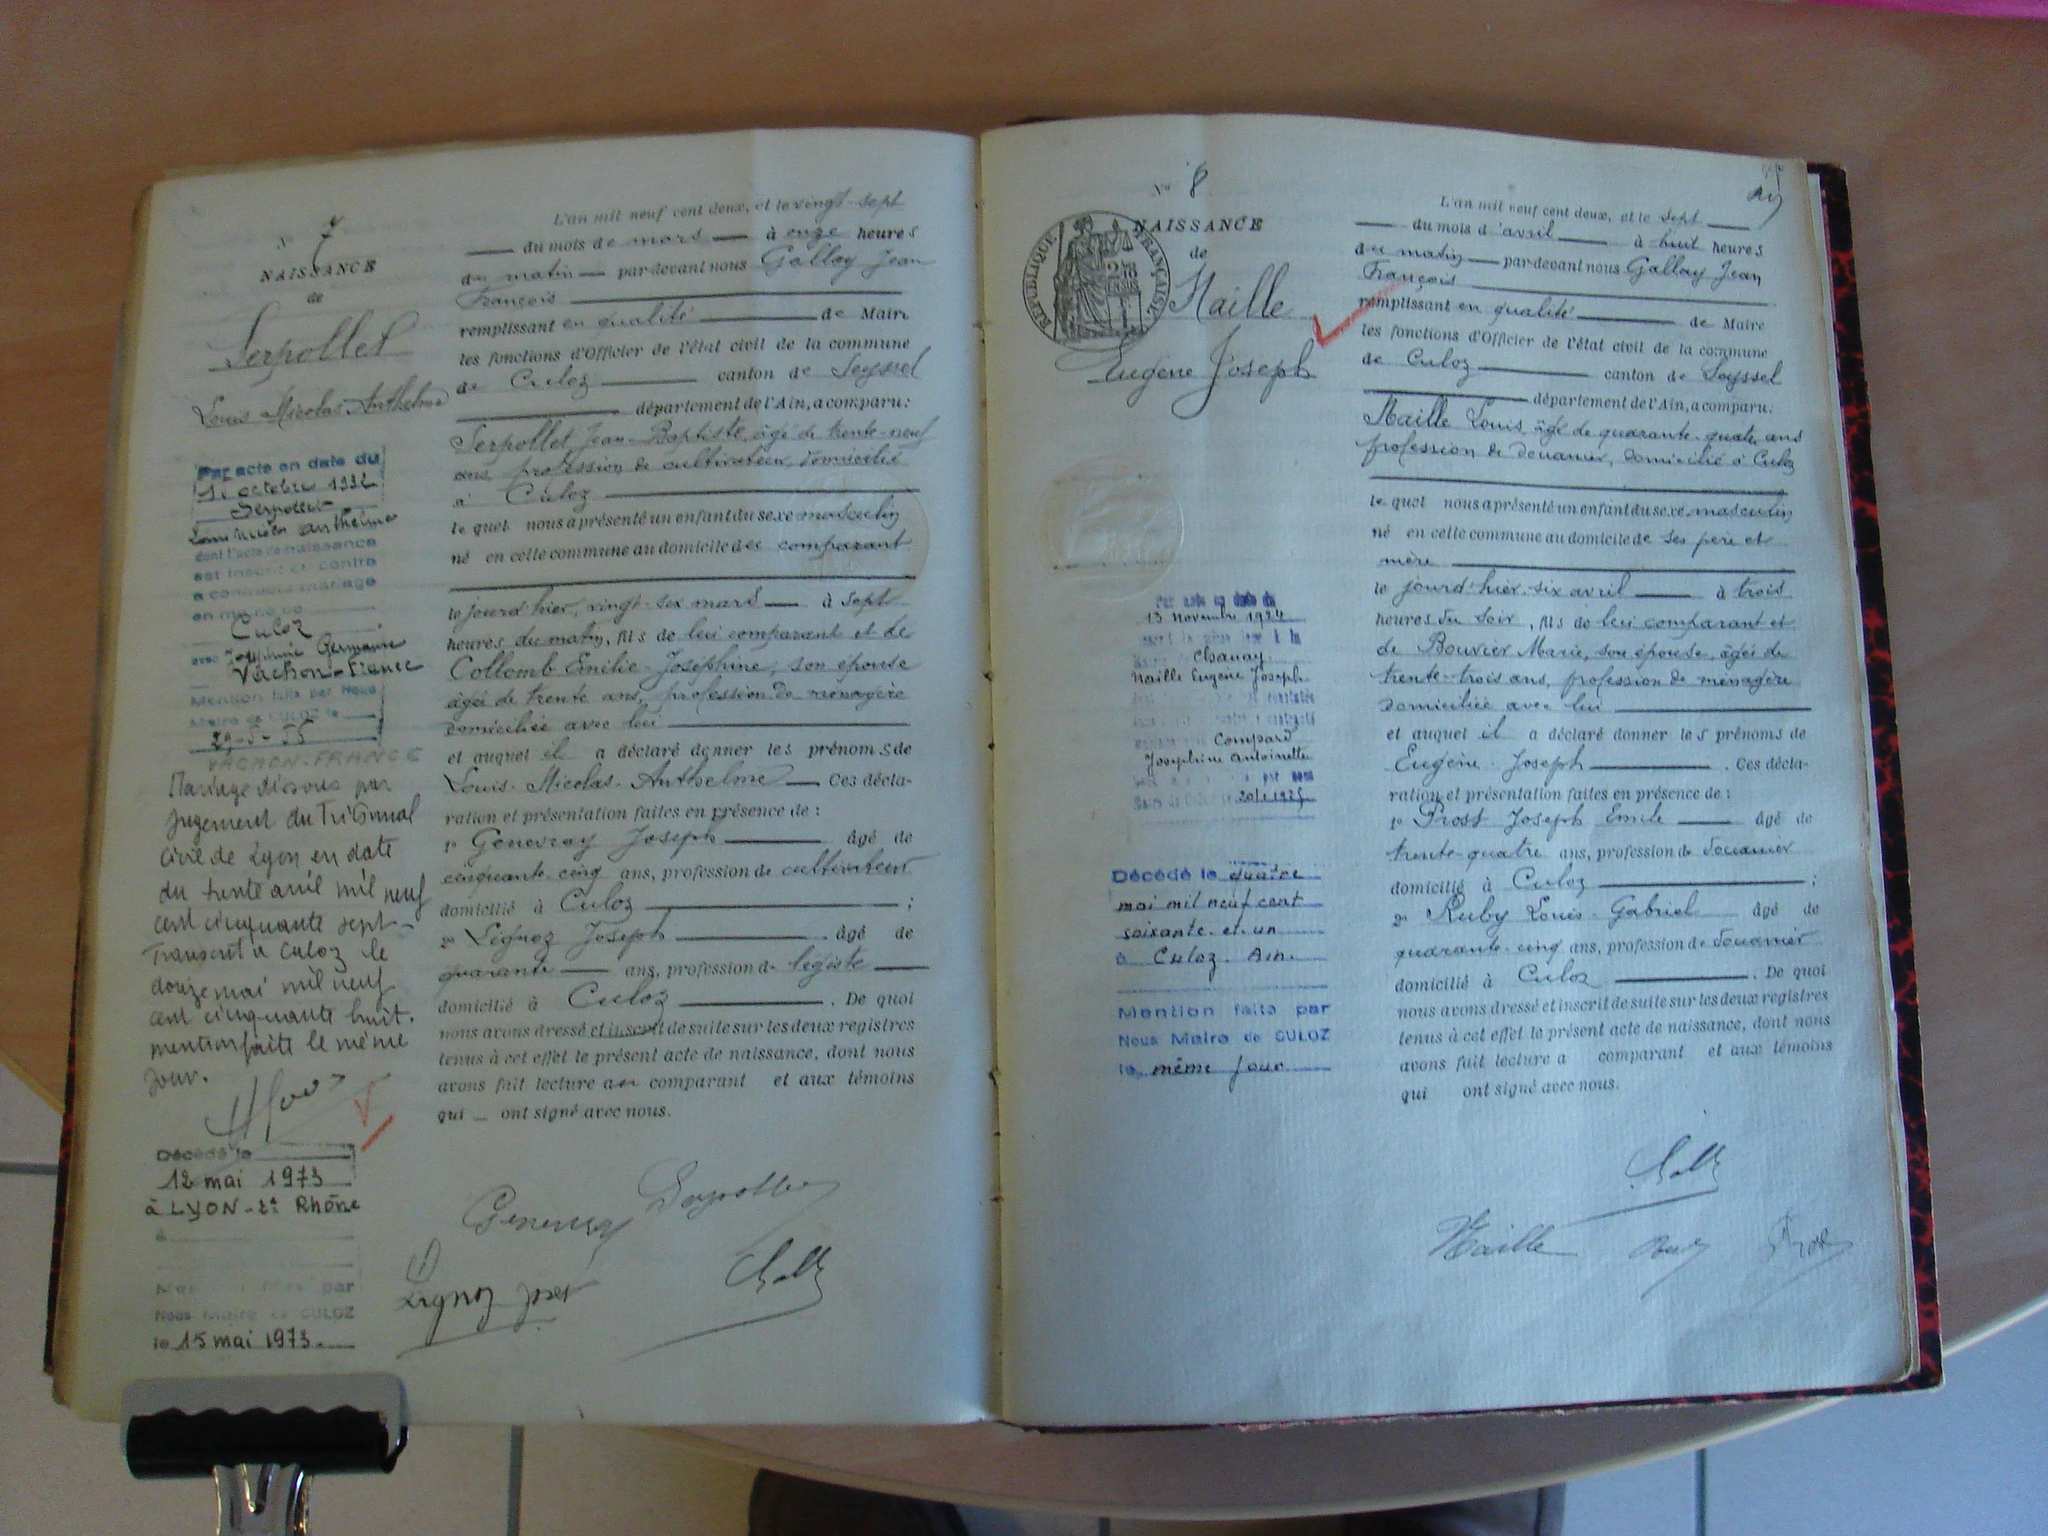 N° 7
NAISSANCE
de
Serpollet
Louis Nicolas Anthelme
Par acte en date du
1er octobre 1932
Serpollet
Louis Nicolas Anthelme
dont l'acte de naissance
est inscrit ci-contre
a contracté mariage
en mairie de
Culoz
avec Joséphine Germaine
Vachon-France
Mention faite par Nous
Maire de CULOZ le
VACHON-FRANCE
Mariage dissous par
jugement du Tribunal
Civil de Lyon en date
du trente avril mil neuf
cent cinquante sept
Transcrit à Culoz le
douze mai mil neuf
cent cinquante huit.
mention faite le même
jour.
Décédé le
12 mai 1973
à LYON - Rhône
à
Mention faite par
Nous Maire de CULOZ
le 15 mai 1973.
L'an mil neuf cent deux, et le vingt-sept
du mois de mars à onze heures
du matin par-devant nous Gallay Jean
François
remplissant en qualité de Maire
les fonctions d'Officier de l'état civil de la commune
de Culoz canton de Seyssel
département de l'Ain, a comparu:
Serpollet Jean-Baptiste, âgé de trente-neuf
ans, profession de cultivateur, domicilié
à Culoz
lequel nous a présenté un enfant du sexe masculin
né en cette commune au domicile des comparant
le jourd'hier, vingt-six mars à sept
heures du matin, fils de lui comparant et de
Collomb Emilie-Joséphine, son épouse
âgée de trente ans, profession de ménagère
domiciliée avec lui
et auquel il a déclaré donner les prénoms de
Louis-Nicolas-Anthelme Ces décla-
ration et présentation faites en présence de :
1° Genevray Joseph âgé de
cinquante-cinq ans, profession de cultivateur
domicilié à Culoz ;
2° Lignoz Joseph âgé de
quarante ans, profession de légiste
domicilié à Culoz . De quoi
nous avons dressé et inscrit de suite sur les deux registres
tenus à cet effet le présent acte de naissance, dont nous
avons fait lecture au comparant et aux témoins
qui ont signé avec nous.
Genevray Serpollet
Lignoz
N° 8
NAISSANCE
de
RÉPUBLIQUE FRANÇAISE
Naille
Eugène Joseph
Par acte en date du
13 Novembre 1924
Chanay
Naille Eugène Joseph
Compard
Joséphine Antoinette
Décédé le quatre
mai mil neuf cent
soixante-et-un
à Culoz. Ain.
Mention faite par
Nous Maire de CULOZ
le même jour
L'an mil neuf cent deux, et le sept
du mois d'avril à huit heures
du matin par-devant nous Gallay Jean
François
remplissant en qualité de Maire
les fonctions d'Officier de l'état civil de la commune
de Culoz canton de Seyssel
département de l'Ain, a comparu:
Naille Louis, âgé de quarante-quatre ans
profession de douanier, domicilié à Culoz
lequel nous a présenté un enfant du sexe masculin
né en cette commune au domicile de ses père et
mère
le jourd'hier six avril à trois
heures du soir, fils de lui comparant et
de Bouvier Marie, son épouse, âgée de
trente-trois ans, profession de ménagère
domiciliée avec lui
et auquel il a déclaré donner les prénoms de
Eugène-Joseph . Ces décla-
ration et présentation faites en présence de :
1° Prost Joseph Emile âgé de
trente-quatre ans, profession de douanier
domicilié à Culoz ;
2° Ruby Louis-Gabriel âgé de
quarante-cinq ans, profession de douanier
domicilié à Culoz . De quoi
nous avons dressé et inscrit de suite sur les deux registres
tenus à cet effet le présent acte de naissance, dont nous
avons fait lecture a comparant et aux témoins
qui ont signé avec nous.
Naille